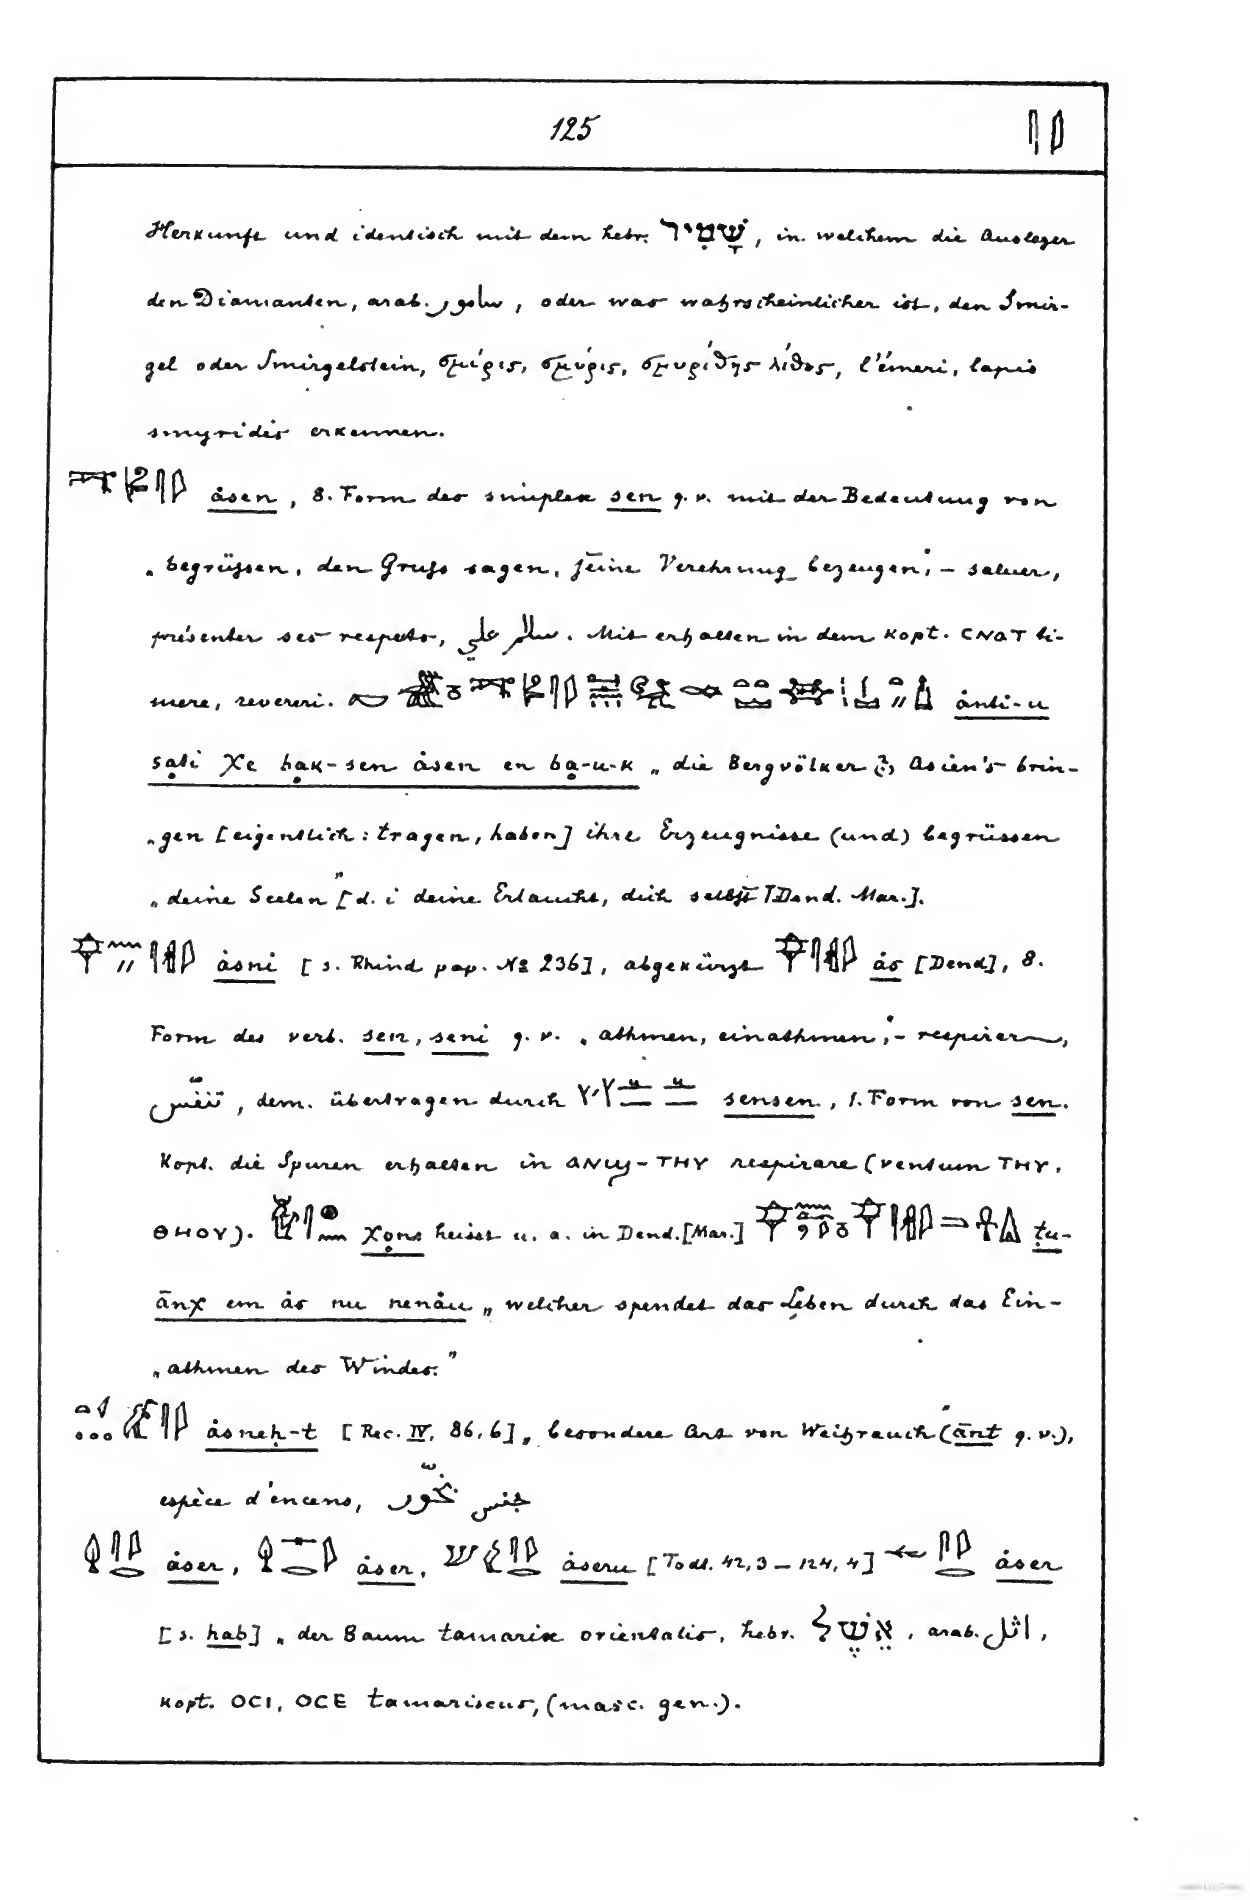 125
Herkunft und identisch mit dem hebr. שָׁמִיר, in welchem die Ausleger
den Diamanten, arab. سامور, oder was wahrscheinlicher ist, den Smir-
gel oder Smirgelstein, σμίρις, σμύρις, σμυρίδης λίθος, l'émeri, lapis
smyridis erkennen.
åsen, 8. Form des simplex sen q. v. mit der Bedeutung von
„begrüssen, den Gruss sagen, seine Verehrung bezeugen", – saluer,
présenter ses respects, سلام علي. Mit erhalten in dem kopt. CNAT ti-
mere, revereri. ånti-u
sati χe hak-sen åsen en ba-u-k „die Bergvölker Asien's brin-
„gen [eigentlich: tragen, haben] ihre Erzeugnisse (und) begrüssen
„deine Seelen" [d. i deine Erlaucht, dich selbst] [Dend. Mar.].
åsni [s. Rhind pap. № 236], abgekürzt ås [Dend], 8.
Form des verb. sen, seni q. v. „athmen, einathmen", – respirer,
تنفّس, dem. übertragen durch sensen, 1. Form von sen.
Kopt. die Spuren erhalten in ANϢ-THY respirare (ventum THY,
ΘHOY). χons heisst u. a. in Dend. [Mar.] tu-
ānχ em ås nu nenåu „welcher spendet das Leben durch das Ein-
„athmen des Windes."
åsneḥ-t [Rec. IV, 86,6], „besondere Art von Weihrauch" (ānt q. v.),
espèce d'encens, جنس بخّور
åser, åser, åseru [Todt. 42,3 – 124,4] åser
[s. hab] „der Baum tamarix orientalis, hebr. אֵשֶׁל, arab. اثل,
kopt. OCI, OCE tamariscus, (masc. gen.).